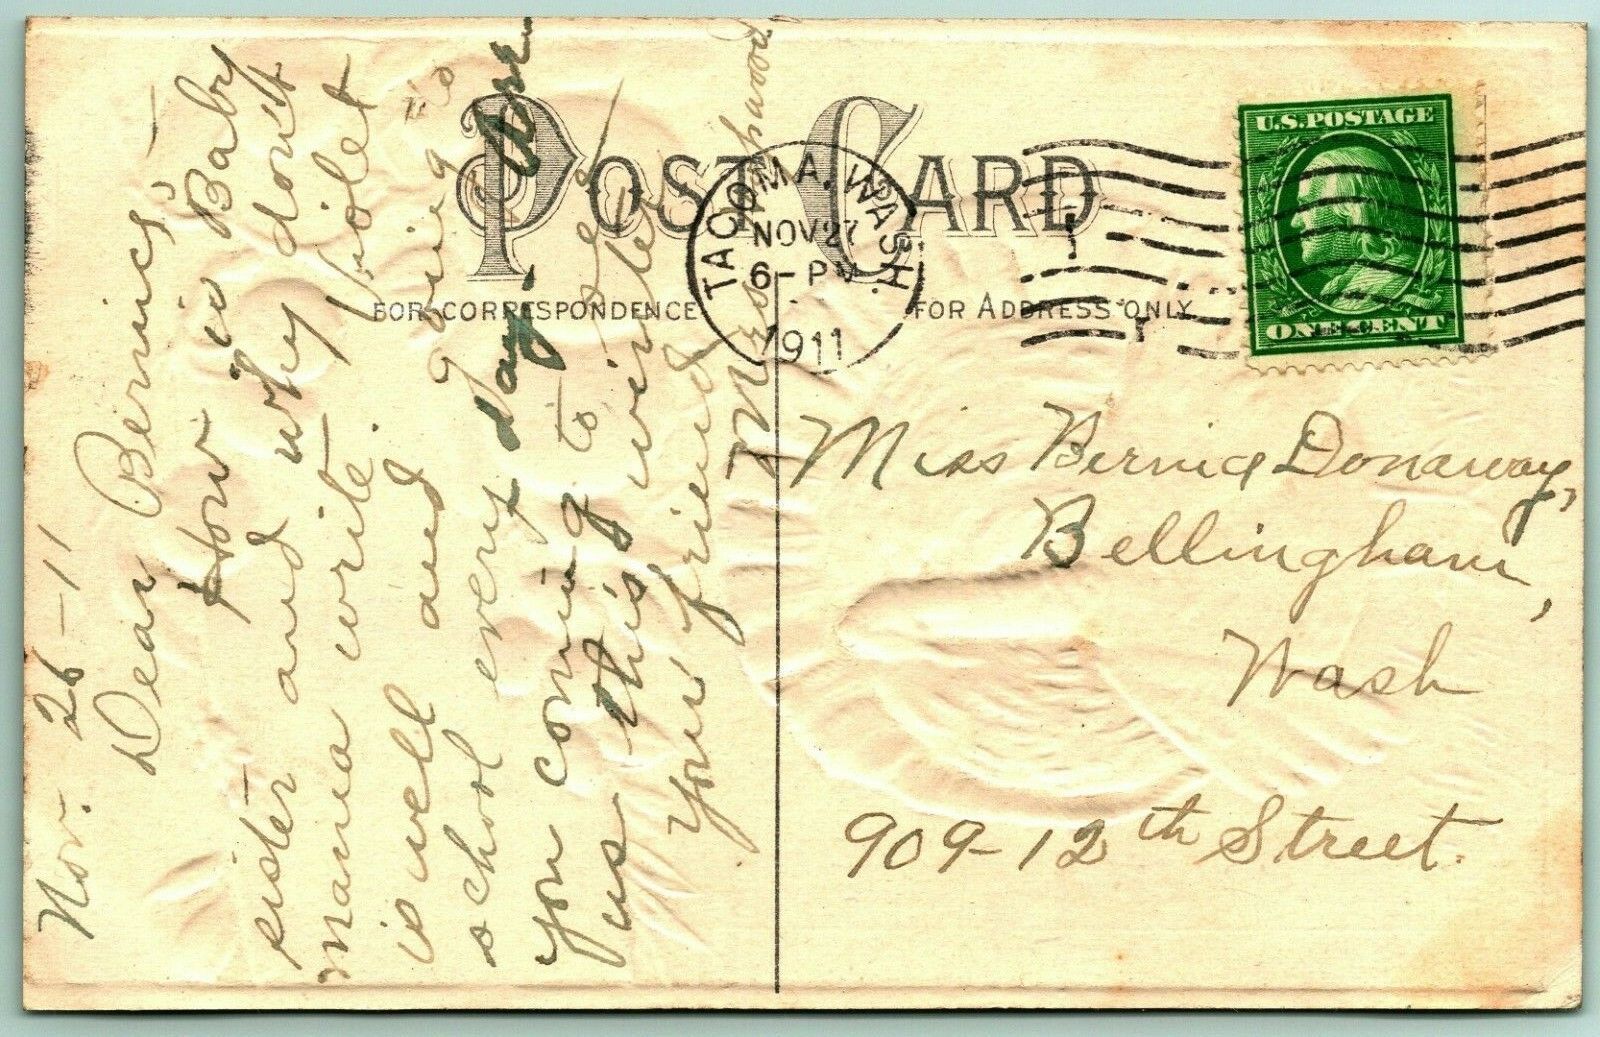 POST CARD
FOR CORRESPONDENCE
FOR ADDRESS ONLY
TACOMA, WASH.
NOV 27
6-PM
1911
U.S. POSTAGE
ONE CENT
Nov. 26-11
Dear Bernice,-
How is Baby
sister and why dont
mama write. Violet
is well and going to
school every day. Are
you coming to see
us this winter
Your friend
Mrs.
Miss Bernice Donaway,
Bellingham,
Wash
909-12th Street.